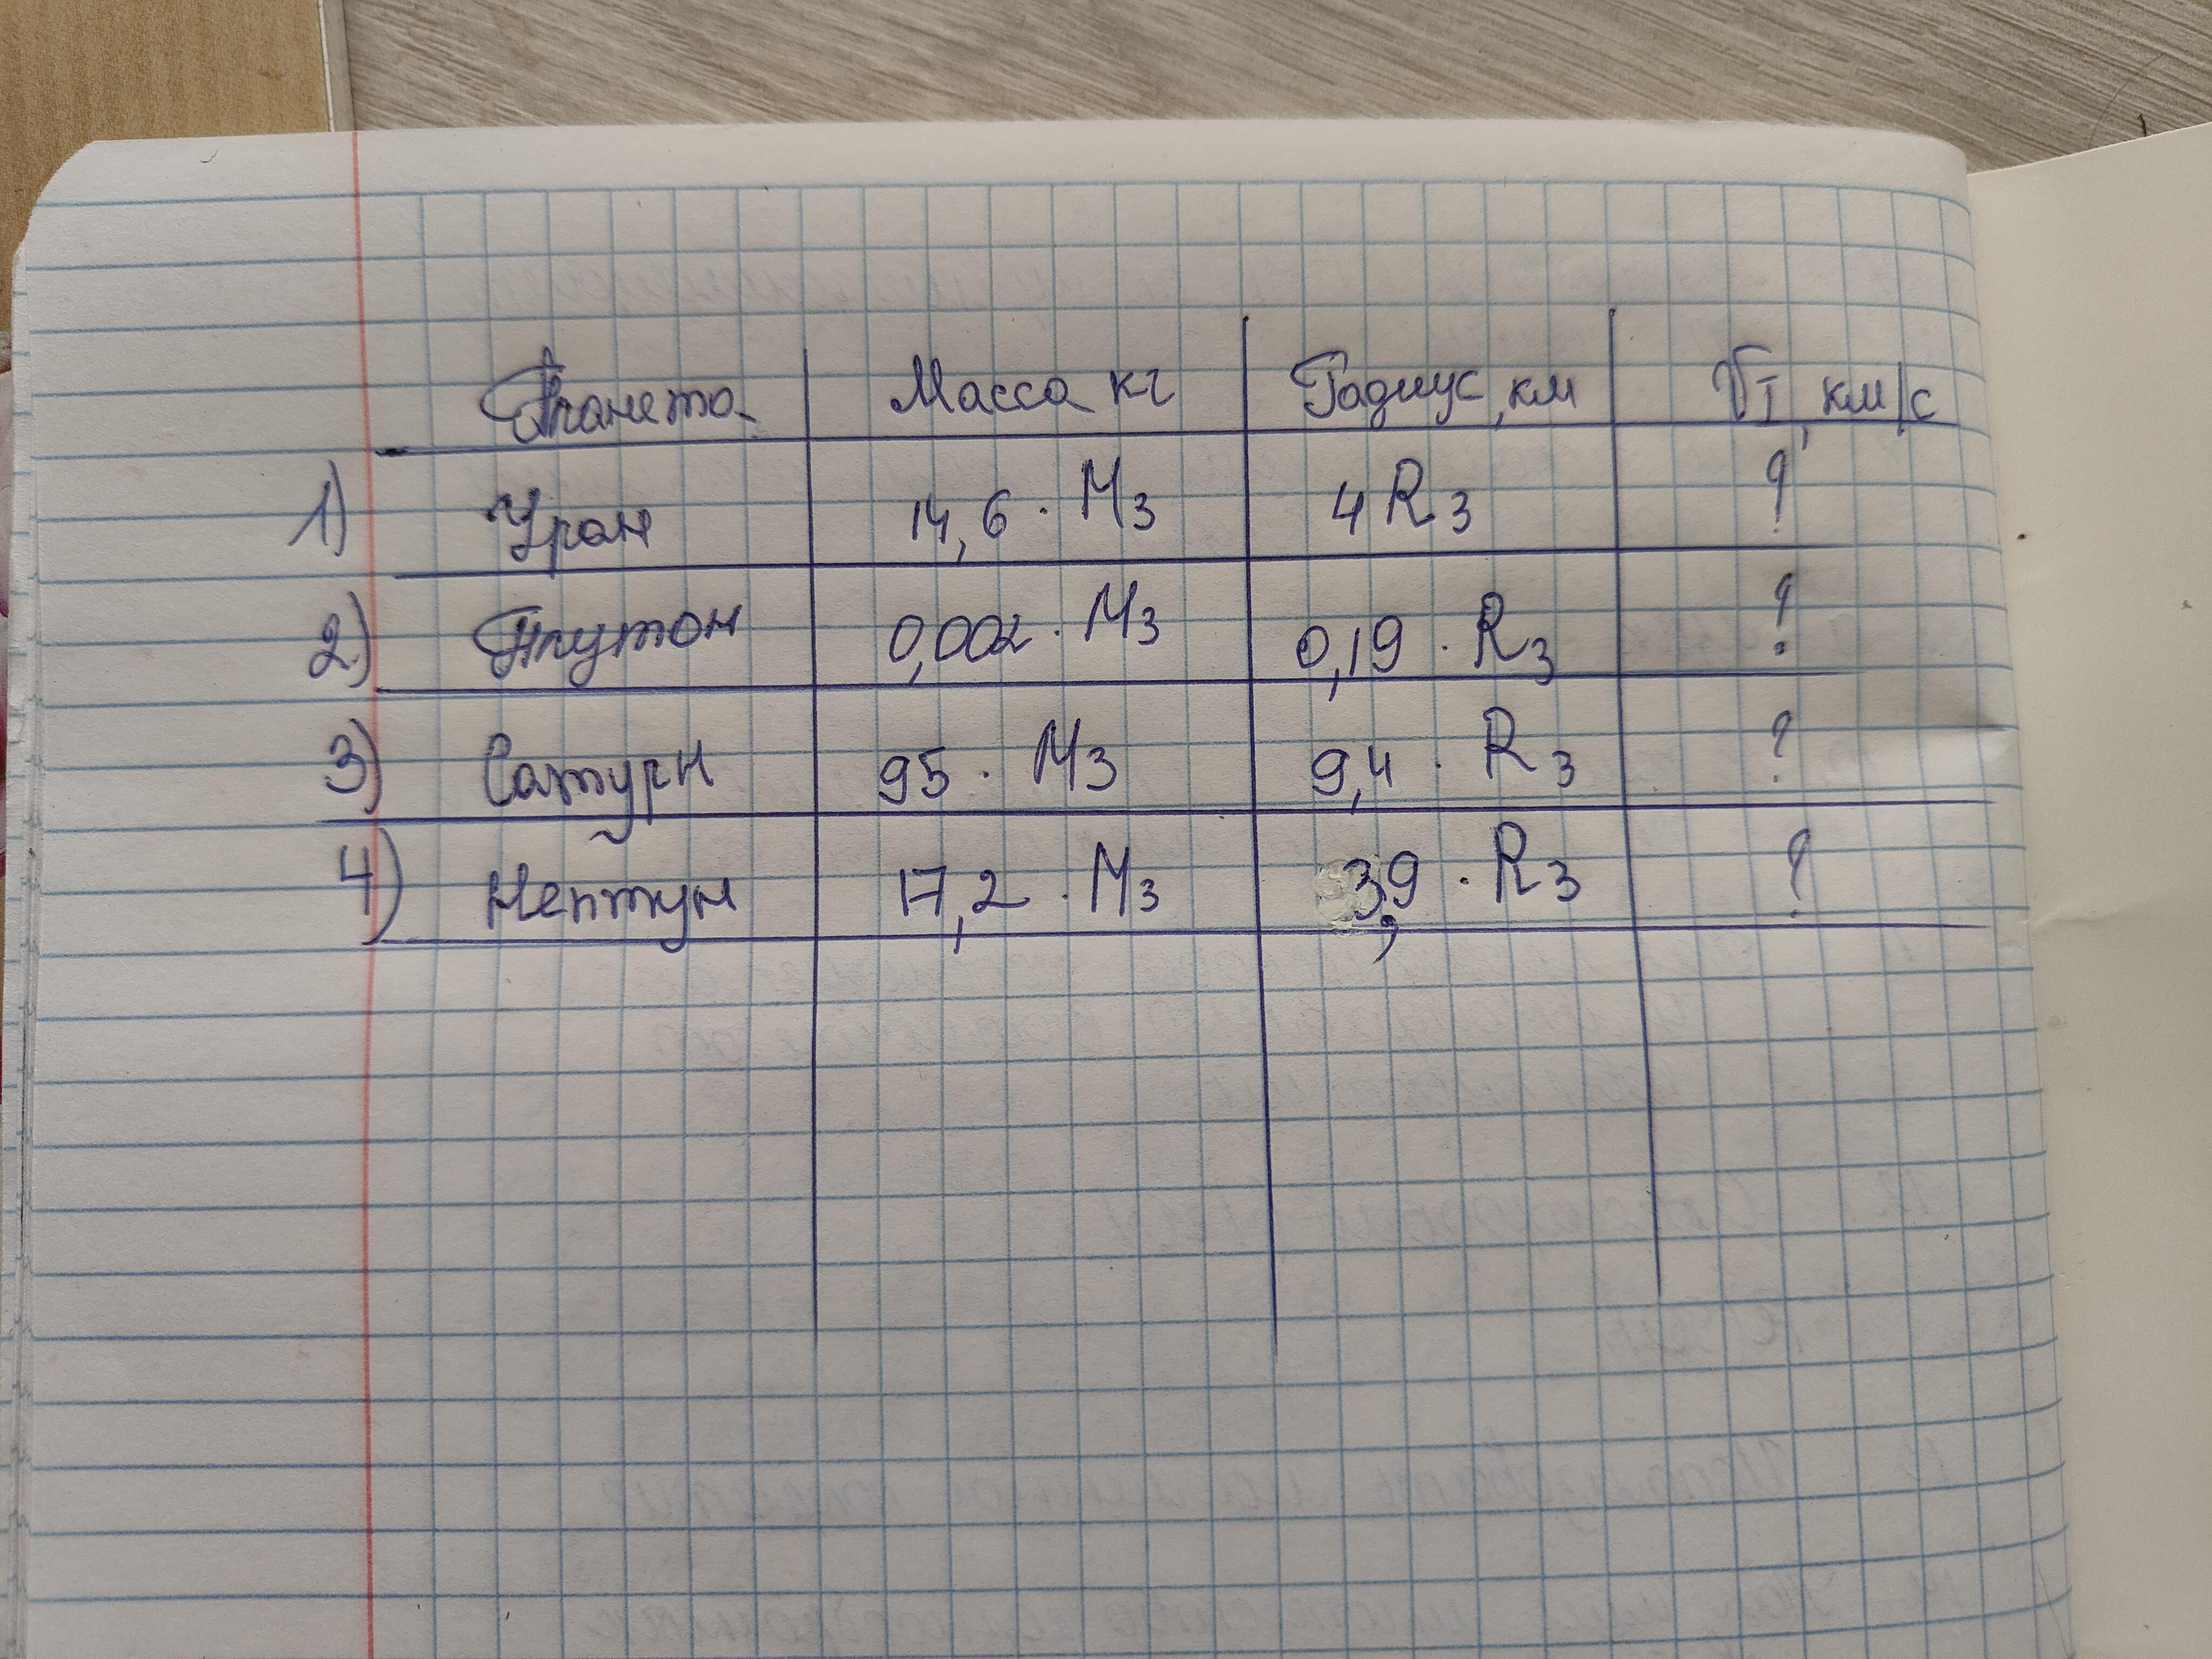 Планета Масса кг Радиус, км V I, км/с
1) Уран 14,6 · М З 4 R З ?
2) Плутон 0,002 · М З 0,19 · R З ?
3) Сатурн 95 · М З 9,4 · R З ?
4) Нептун 17,2 · М З 3,9 · R З ?